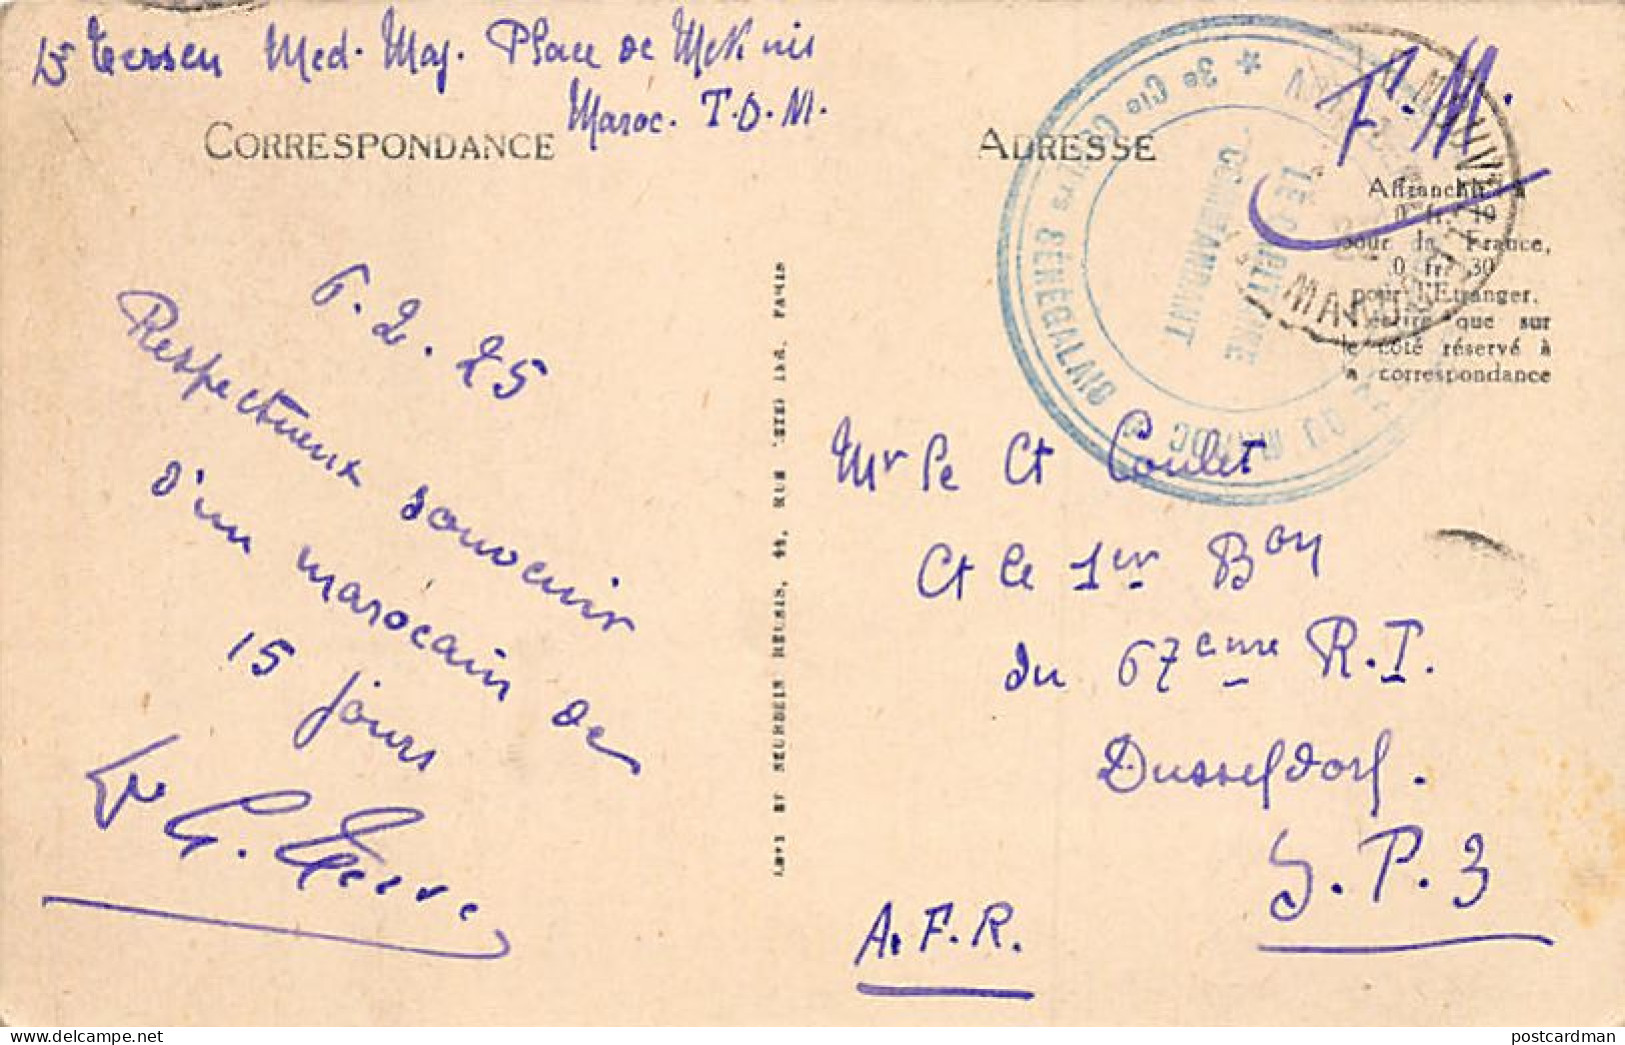 Dr Tersen Med. Maj. Place de Meknis
Maroc. T.O.M.
CORRESPONDANCE
6.2.25
Respectueux souvenir
d'un marocain de
15 jours
G. Tersen
ADRESSE
F.M.
Affranchir à
0 fr. 10
pour la France,
0 fr. 30
pour l'Etranger.
écrire que sur
le côté réservé à
la correspondance
3e Cie
SÉNÉGALAIS
DU MAROC
COMMANDANT
MAROC
Mr le Ct Coulet
Ct le 1er Bon
du 67eme R.I.
Dusseldorf.
S.P.3
A.F.R.
LEVY ET NEURDEIN REUNIS, 44, RUE LETELLIER, PARIS
postcardman